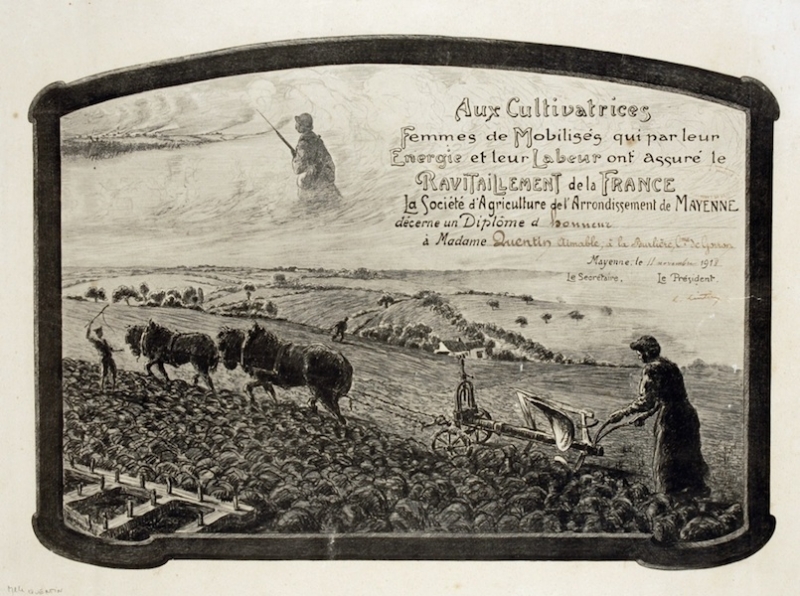 Aux Cultivatrices
Femmes de Mobilisés qui par leur
Energie et leur Labeur ont assuré le
RAVITAILLEMENT de la FRANCE
La Société d'Agriculture de l'Arrondissement de MAYENNE
décerne un Diplôme d honneur
à Madame Quentin Aimable, à la Burlière, Cne de
Mayenne, le 11 novembre 1918
Le Secrétaire, Le Président.